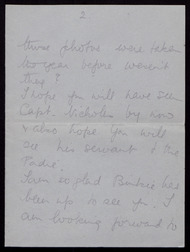 2
these photos were taken
year before weren't
they?
I hope you will have seen
Capt. Nicholson by now
& also hope you will
see his servant & the
Padre.
I am so glad has
been up to see you. I
am looking forward to